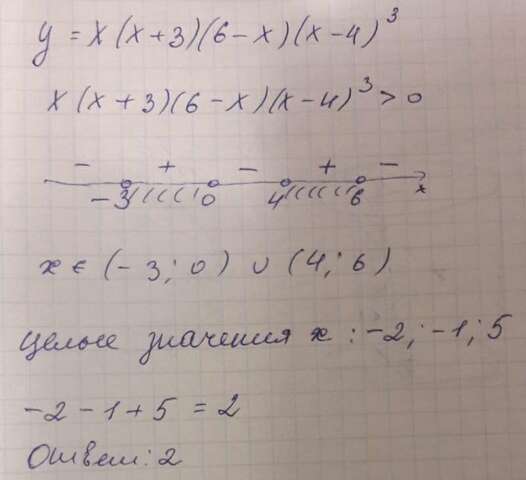 y = x(x+3)(6-x)(x-4)³
x(x+3)(6-x)(x-4)³ > 0
- + - + -
-3 0 4 6 x
x ∈ (-3; 0) ∪ (4; 6)
целые значения x: -2; -1; 5
-2-1+5 = 2
Ответ: 2